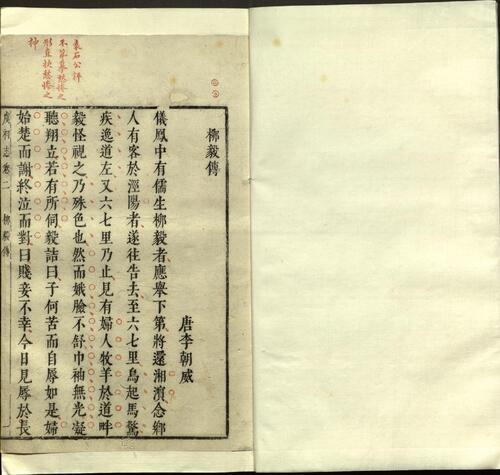 袁石公評
不能摹愁慘之
形直抉愁慘之
神
柳毅傳
唐李朝威
儀鳳中有儒生柳毅者應舉下第將還湘濱念鄉
人有客於涇陽者遂往告去至六七里鳥起馬驚
疾逸道左又六七里乃止見有婦人牧羊於道畔
毅怪視之乃殊色也然而娥臉不舒巾袖無光凝
聽翔立若有所伺毅詰曰子何苦而自辱如是婦
始楚而謝終泣而對曰賤妾不幸今日見辱於長
虞初志卷二
柳毅傳